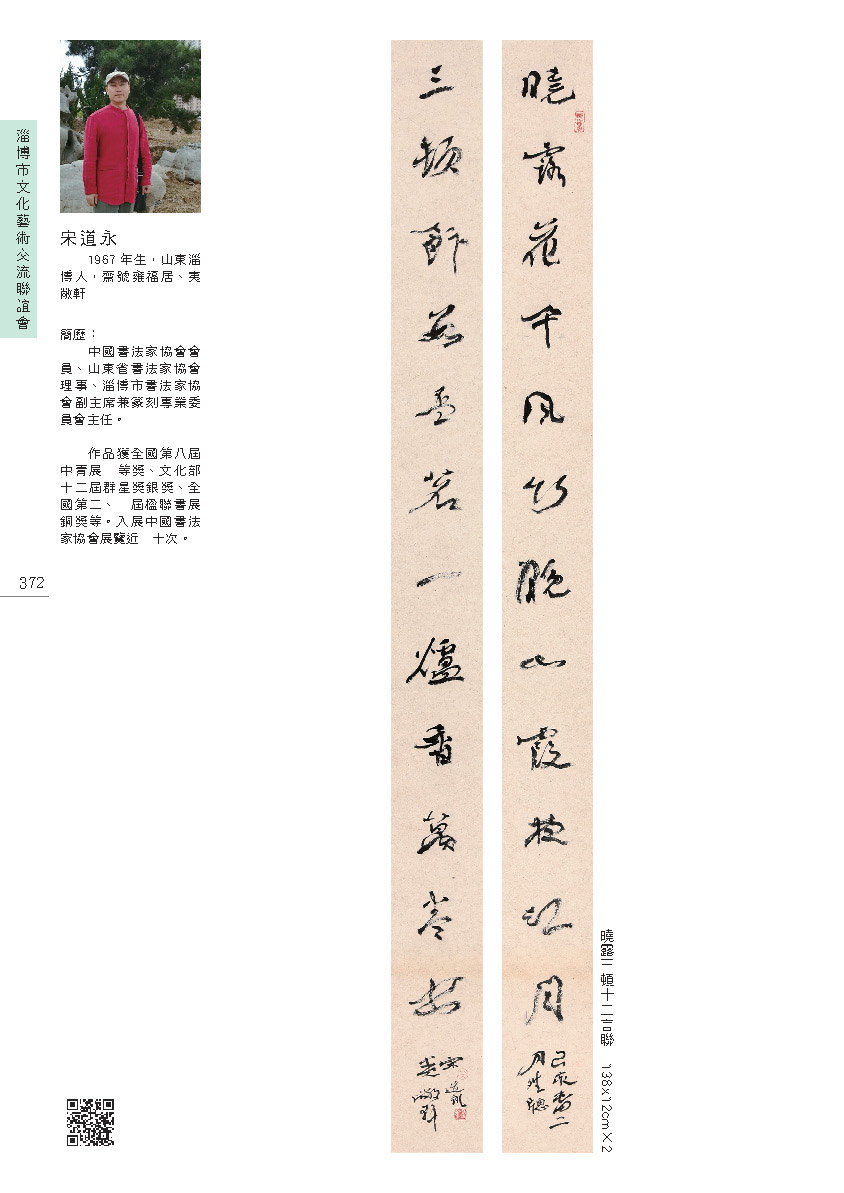 淄博市文化藝術交流聯誼會
宋道永
1967 年生，山東淄
博人，齋號雍福居、夷
敞軒
簡歷：
中國書法家協會會
員、山東省書法家協會
理事、淄博市書法家協
會副主席兼篆刻專業委
員會主任。
作品獲全國第八屆
中青展 等獎、文化部
十二屆群星獎銀獎、全
國第二、 屆楹聯書展
銅獎等。入展中國書法
家協會展覽近 十次。
372
曉露花千風竹晚山霞枝江月
三頓飯數壺茗一爐香萬卷書
曉露三頓十二言聯 138x12cm×2